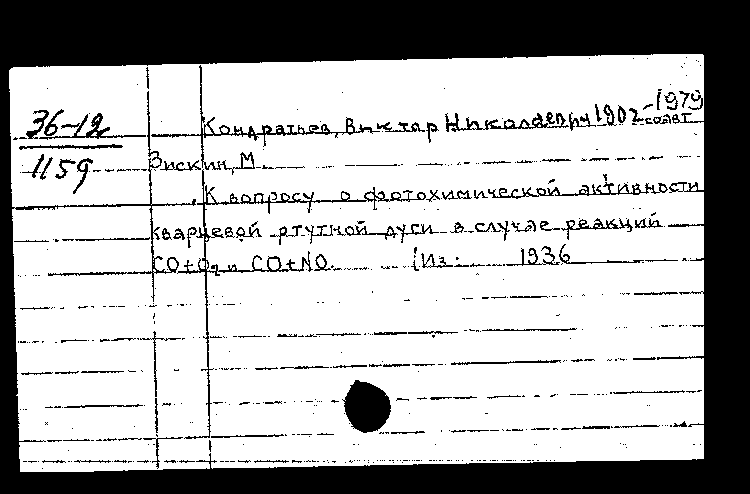 36-12
1159
Кондратьев, Виктор Николаевич 1902-1979
соавт
Зискин, М.
К вопросу о фотохимической активности
кварцевой ртутной дуси в случае реакций
CO+O2 и CO+NO. (Из: 1936